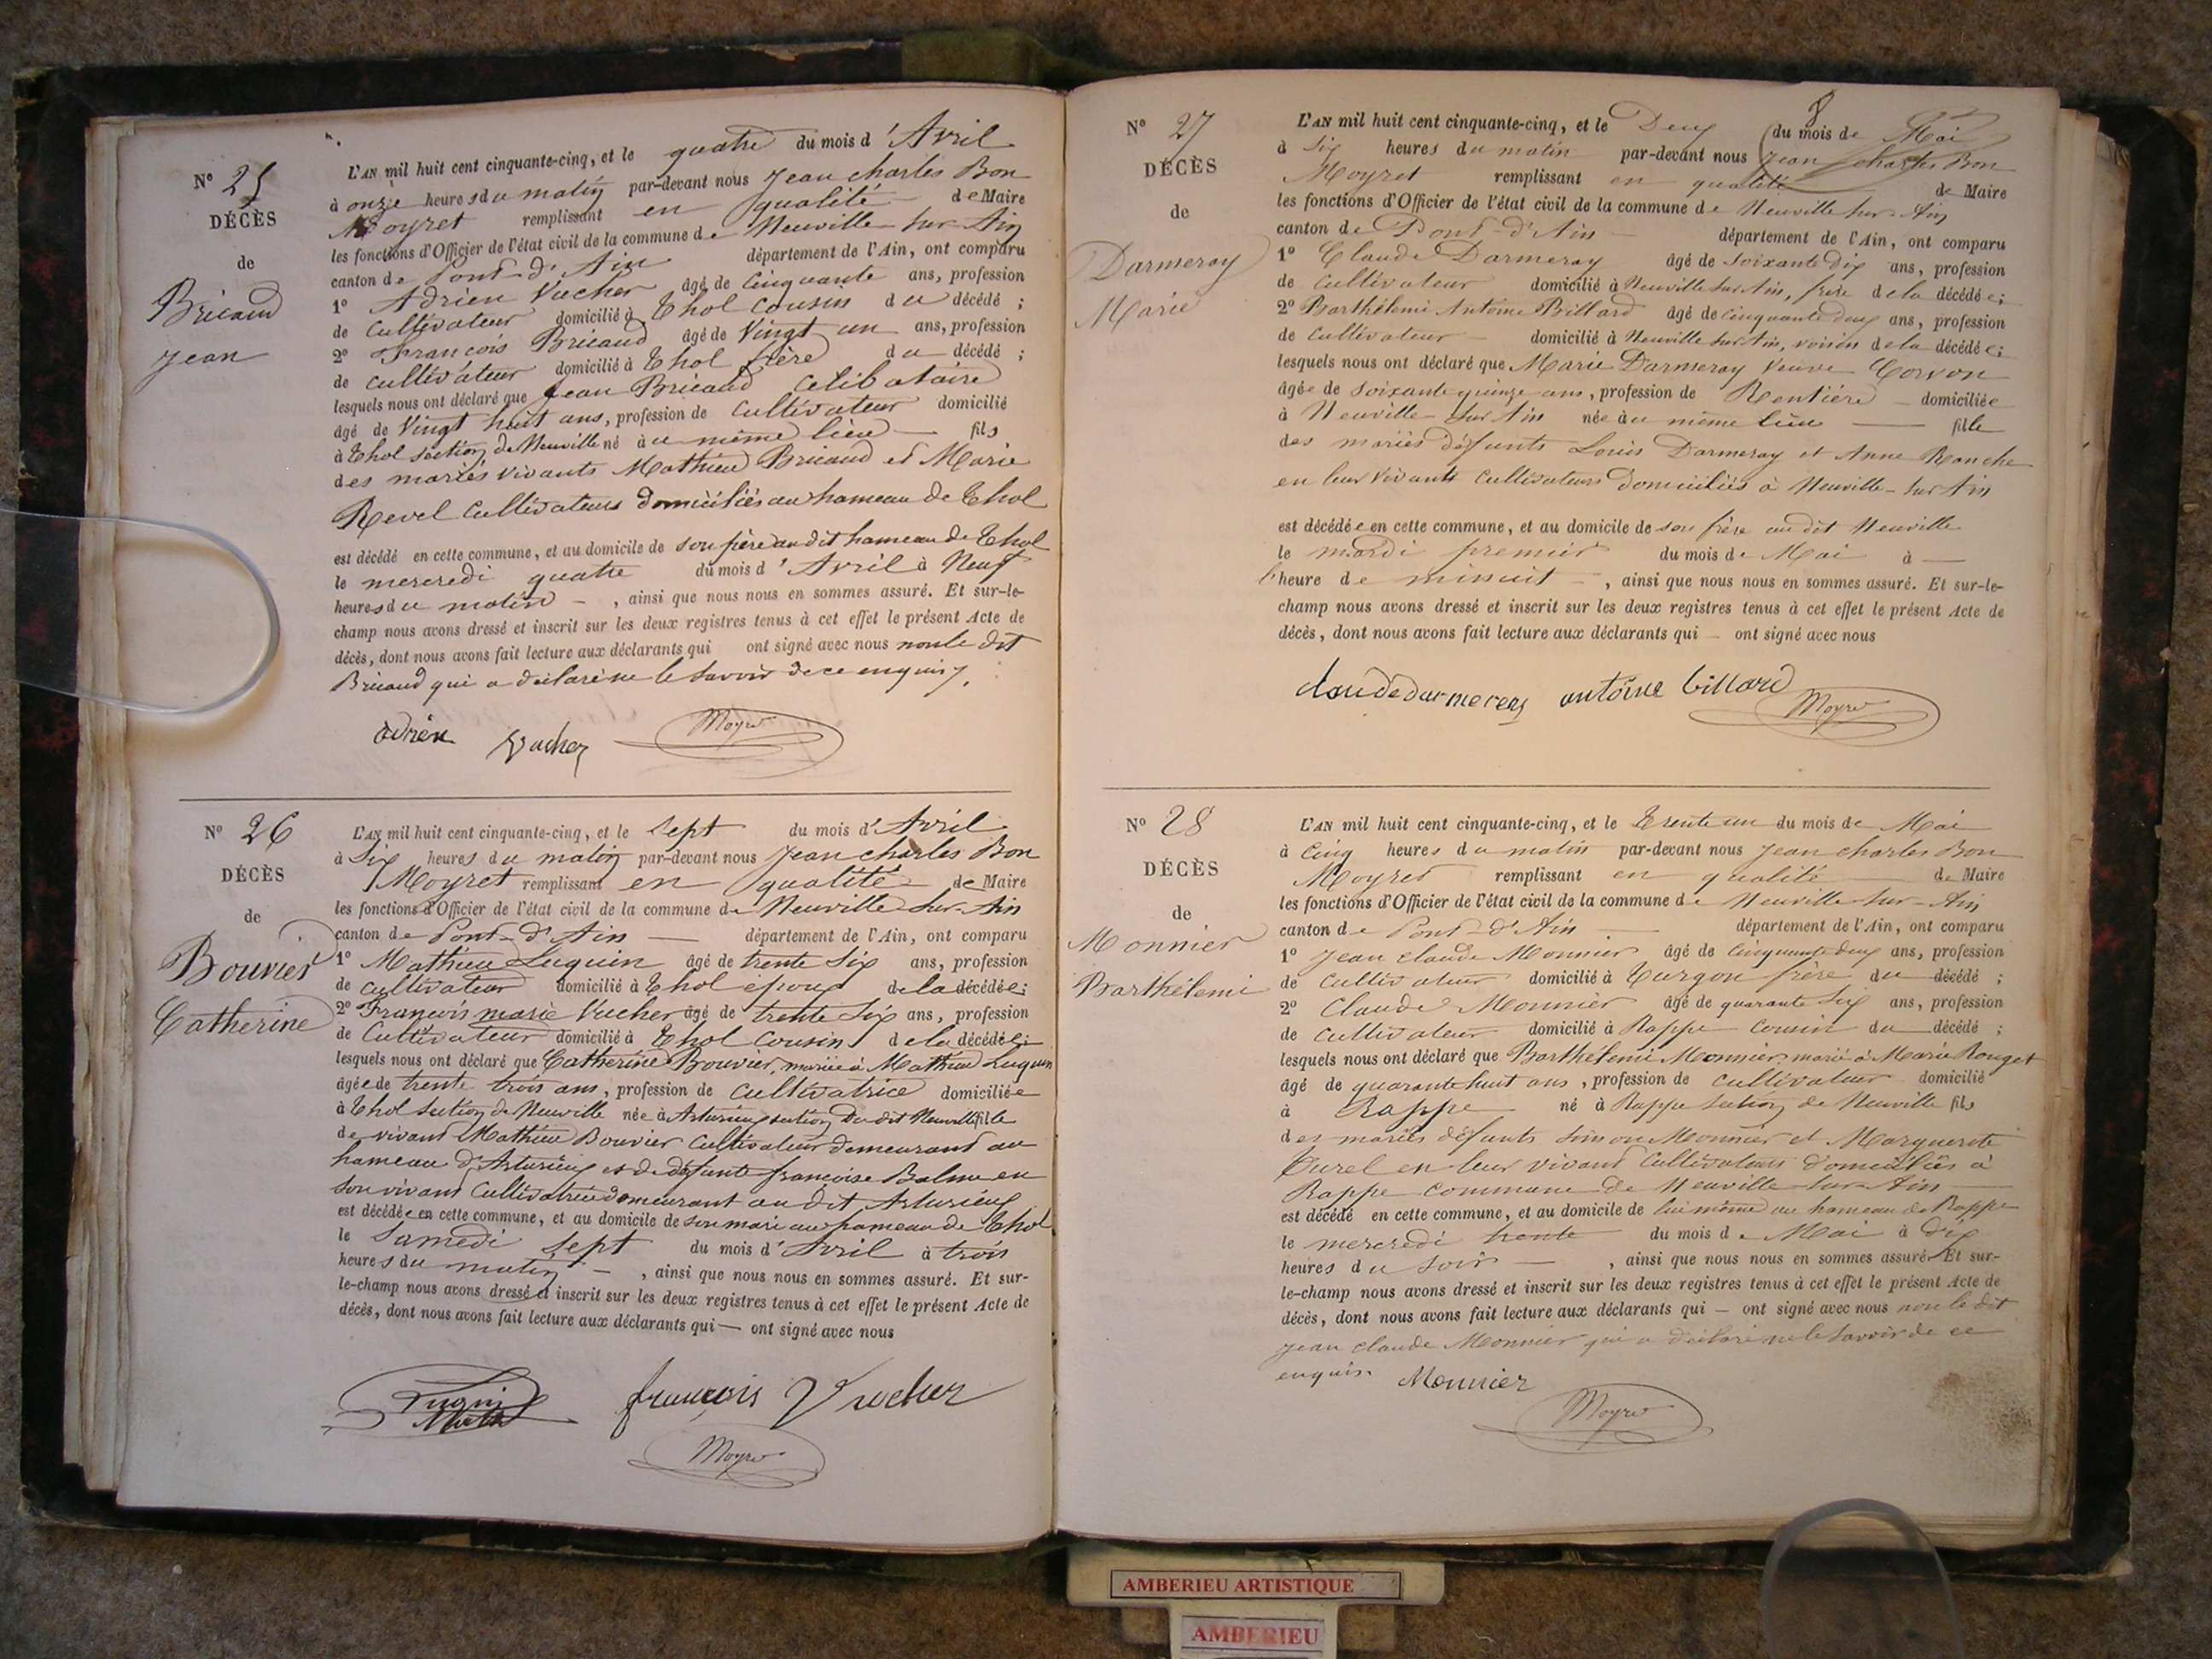 N° 25
DÉCÈS
de
Bricaud
Jean
L'AN mil huit cent cinquante-cinq, et le quatre du mois d'Avril
à onze heures du matin par-devant nous Jean charles Bon
Moyret remplissant en qualité de Maire
les fonctions d'Officier de l'état civil de la commune de Neuville sur Ain
canton de Pont-d'Ain département de l'Ain, ont comparu
1° Adrien Vucher âgé de Cinquante ans, profession
de Cultivateur domicilié à Thol Cousin du décédé ;
2° François Bricaud âgé de Vingt un ans, profession
de cultivateur domicilié à Thol frère du décédé ;
lesquels nous ont déclaré que Jean Bricaud Célibataire
âgé de Vingt huit ans, profession de Cultivateur domicilié
à Thol Section de Neuville né à u même lieu fils
des mariés vivants Mathieu Bricaud et Marie
Revel Cultivateurs domiciliés au hameau de Thol
est décédé en cette commune, et au domicile de son père au dit hameau de Thol
le mercredi quatre du mois d'Avril à Neuf
heures du matin , ainsi que nous nous en sommes assuré. Et sur-le-
champ nous avons dressé et inscrit sur les deux registres tenus à cet effet le présent Acte de
décès, dont nous avons fait lecture aux déclarants qui ont signé avec nous non le dit
Bricaud qui a déclaré ne le savoir de ce enquis.
adrien Vucher Moyret
N° 26
DÉCÈS
de
Bouvier
Catherine
L'AN mil huit cent cinquante-cinq, et le Sept du mois d'Avril
à Six heures du matin par-devant nous Jean charles Bon
Moyret remplissant en qualité de Maire
les fonctions d'Officier de l'état civil de la commune de Neuville sur Ain
canton de Pont-d'Ain département de l'Ain, ont comparu
1° Mathieu Luquin âgé de trente Six ans, profession
de cultivateur domicilié à Thol epoux de la décédée ;
2° François marie Vucher âgé de trente Six ans, profession
de Cultivateur domicilié à Thol Cousin de la décédée ;
lesquels nous ont déclaré que Catherine Bouvier, mariée à Mathieu Luquin
âgée de trente trois ans, profession de Cultivatrice domiciliée
à Thol Section de Neuville née à Arturieux section du dit Neuville fille
de vivant Mathieu Bouvier Cultivateur demeurant au
hameau d'Arturieux et de défunte françoise Balme en
son vivant Cultivatrice demeurant au dit Arturieux
est décédée en cette commune, et au domicile de son mari au hameau de Thol
le Samedi Sept du mois d'Avril à trois
heures du matin , ainsi que nous nous en sommes assuré. Et sur-
le-champ nous avons dressé et inscrit sur les deux registres tenus à cet effet le présent Acte de
décès, dont nous avons fait lecture aux déclarants qui — ont signé avec nous
françois Vucher
Moyret
8
N° 27
DÉCÈS
de
Darmeray
Marie
L'AN mil huit cent cinquante-cinq, et le Deux du mois de Mai
à Six heures du matin par-devant nous Jean Charles Bon
Moyret remplissant en qualité de Maire
les fonctions d'Officier de l'état civil de la commune de Neuville sur Ain
canton de Pont-d'Ain département de l'Ain, ont comparu
1° Claude Darmeray âgé de Soixante dix ans, profession
de Cultivateur domicilié à Neuville sur Ain, frère de la décédée ;
2° Barthélemi Antoine Billard âgé de cinquante deux ans, profession
de Cultivateur domicilié à Neuville sur Ain, voisin de la décédée ;
lesquels nous ont déclaré que Marie Darmeray Veuve Corvon
âgée de Soixante quinze ans, profession de Rentière domiciliée
à Neuville sur Ain née à u même lieu fille
des mariés défunts Louis Darmeray et Anne Ranche
en leur vivants Cultivateurs domiciliés à Neuville-sur Ain
est décédée en cette commune, et au domicile de son frère au dit Neuville
le mardi premier du mois de Mai à —
l'heure de minuit , ainsi que nous nous en sommes assuré. Et sur-le-
champ nous avons dressé et inscrit sur les deux registres tenus à cet effet le présent Acte de
décès, dont nous avons fait lecture aux déclarants qui — ont signé avec nous
antoine billard Moyret
N° 28
DÉCÈS
de
Monnier
Barthélemi
L'AN mil huit cent cinquante-cinq, et le Trente un du mois de Mai
à Cinq heures du matin par-devant nous Jean charles Bon
Moyret remplissant en qualité de Maire
les fonctions d'Officier de l'état civil de la commune de Neuville sur Ain
canton de Pont-d'Ain département de l'Ain, ont comparu
1° Jean Claude Monnier âgé de Cinquante deux ans, profession
de Cultivateur domicilié à Turgon frère du décédé ;
2° Claude Monnier âgé de quarante Six ans, profession
de cultivateur domicilié à Rappe Cousin du décédé ;
lesquels nous ont déclaré que Barthélemi Monnier, marié à Marie Rouget
âgé de quarante huit ans, profession de cultivateur domicilié
à Rappe né à Rappe Section de Neuville fils
des mariés défunts Simon Monnier et Marguerite
Curel en leur vivant Cultivateurs domiciliés à
Rappe Commune de Neuville sur Ain
est décédé en cette commune, et au domicile de lui même au hameau de Rappe
le mercredi trente du mois de Mai à dix
heures du soir , ainsi que nous nous en sommes assuré. Et sur-
le-champ nous avons dressé et inscrit sur les deux registres tenus à cet effet le présent Acte de
décès, dont nous avons fait lecture aux déclarants qui — ont signé avec nous non le dit
Jean Claude Monnier qui a déclaré ne le savoir de ce
enquis. Monnier
Moyret
AMBERIEU ARTISTIQUE
AMBERIEU